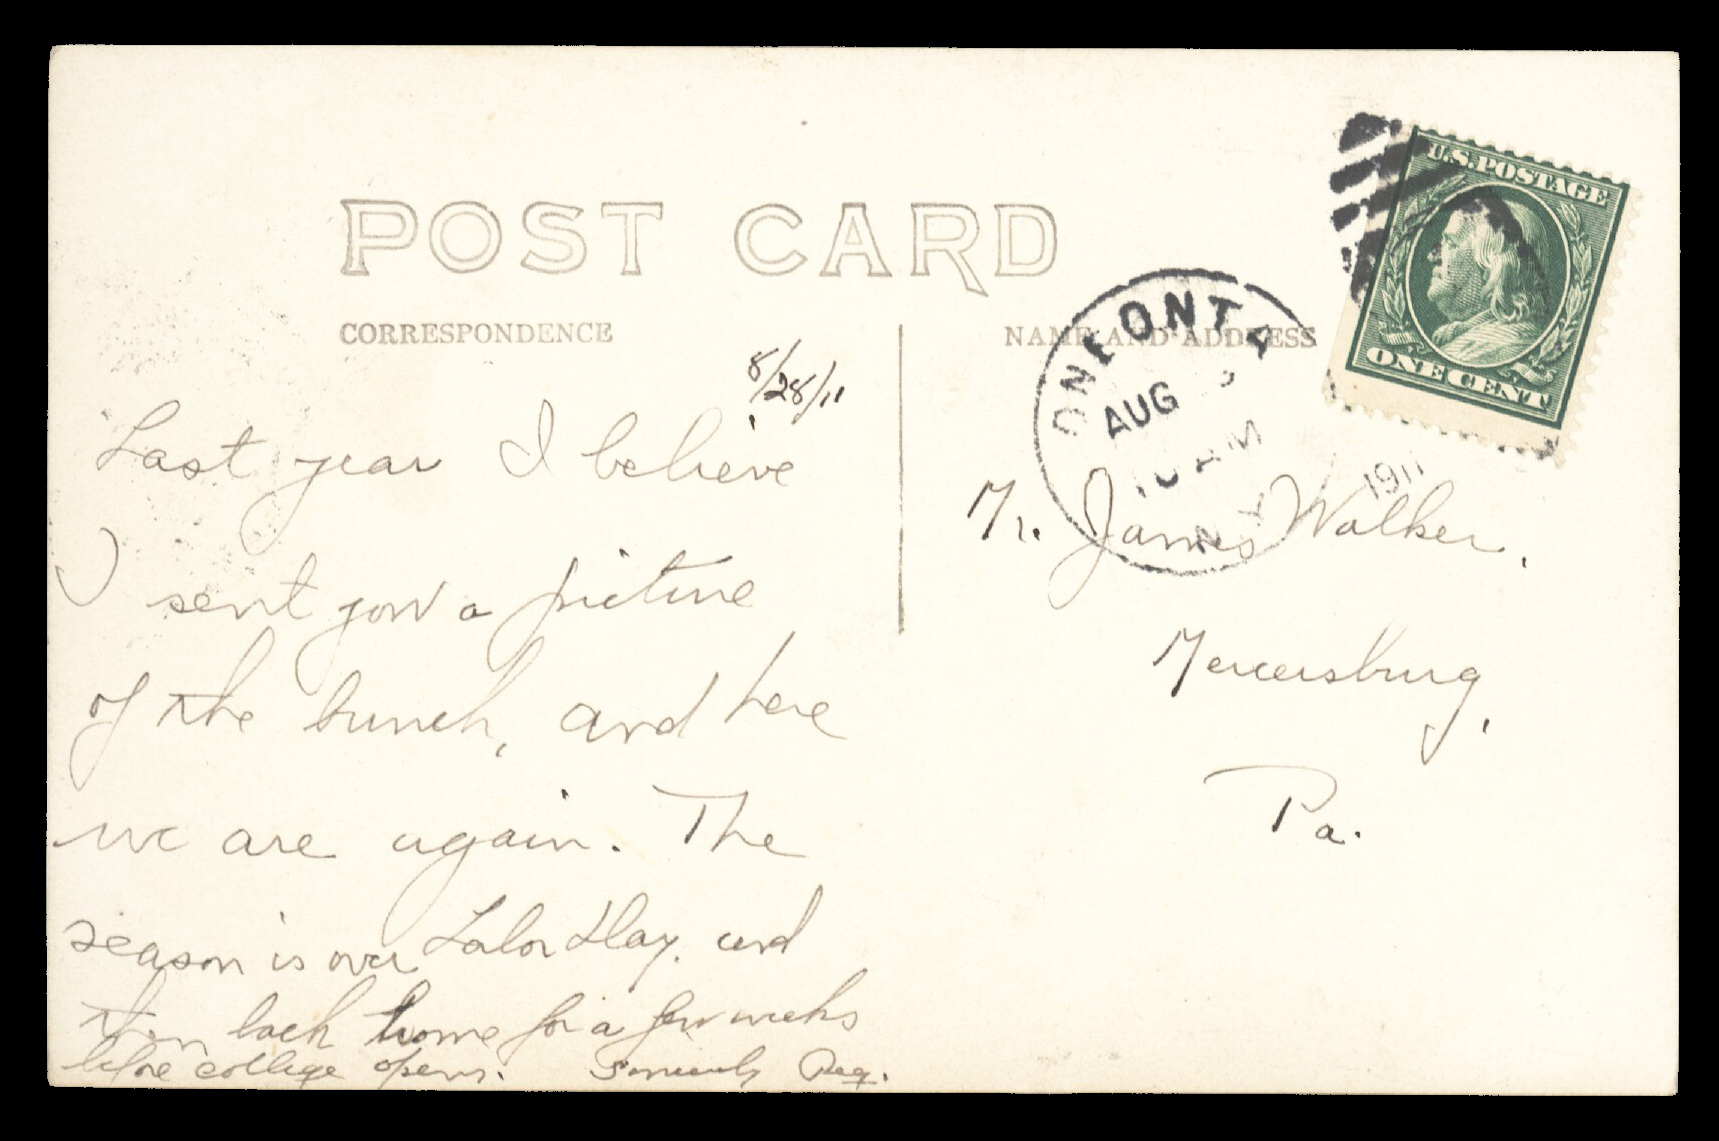 POST CARD
CORRESPONDENCE
NAME AND ADDRESS
U.S. POSTAGE
ONE CENT
ONEONTA
AUG
10 AM
1911
N.Y.
8/28/11
Last year I believe
I sent you a picture
of the bunch, and here
we are again. The
season is over Labor Day. and
then back home for a few weeks
before college opens. Sincerely
Mr. James Walker,
Mercersburg,
Pa.